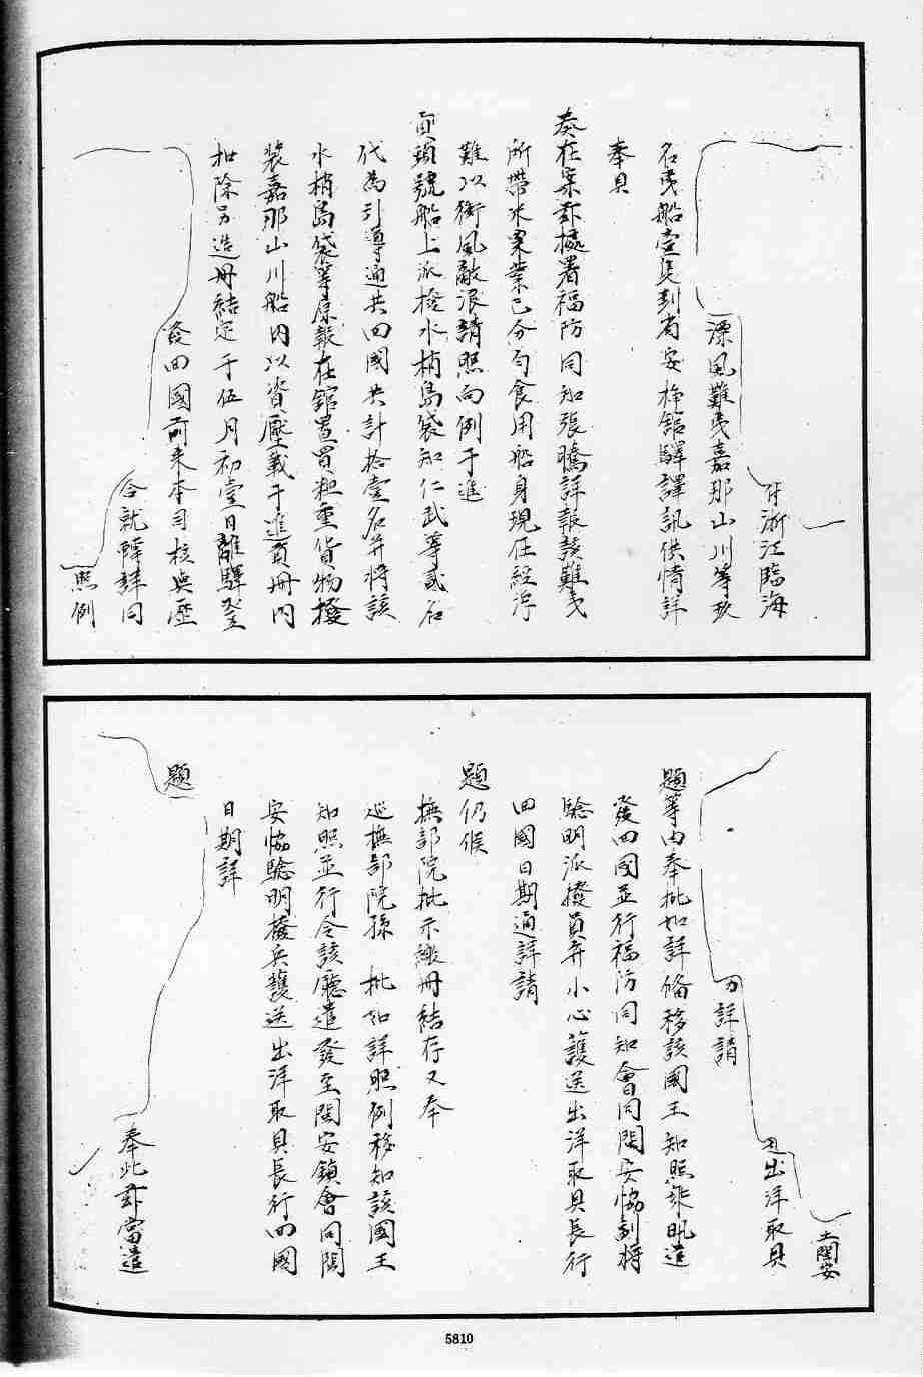 牙浙江臨海
漂風難夷嘉那山川等玖
名夷船壹隻到省安揷舘驛譯訊供情詳
奉具
奏在案玆據署福防同知張騰詳報該難夷
所帶水米業已分勻食用船身現在經浮
難以衝風敵浪請照向例于進
貢頭號船上派撥水梢島袋知仁武等貳名
代為引導通共回國共計拾壹名并將該
水梢島袋等原報在舘置買粗重貨物撥
裝嘉那山川船内以資壓載于進貢冊内
扣除另造冊結定于伍月初壹日離驛登
發回國前来本司核與歷
合就轉詳同
照例
土閩安
出洋取具
乃詳請
題等由奉批如詳俻移該國王知照飭遣
發回國並行福防同知會同閩安協副將
驗明派撥員弁小心護送出洋取具長行
回國日期通詳請
題仍候
撫部院批示繳冊結存又奉
巡撫部院孫 批如詳照例移知該國王
知照並行令該廳遣發至閩安鎮會同閩
安協驗明撥兵護送出洋取具長行回國
日期詳
題
奉此玆當遣
5810